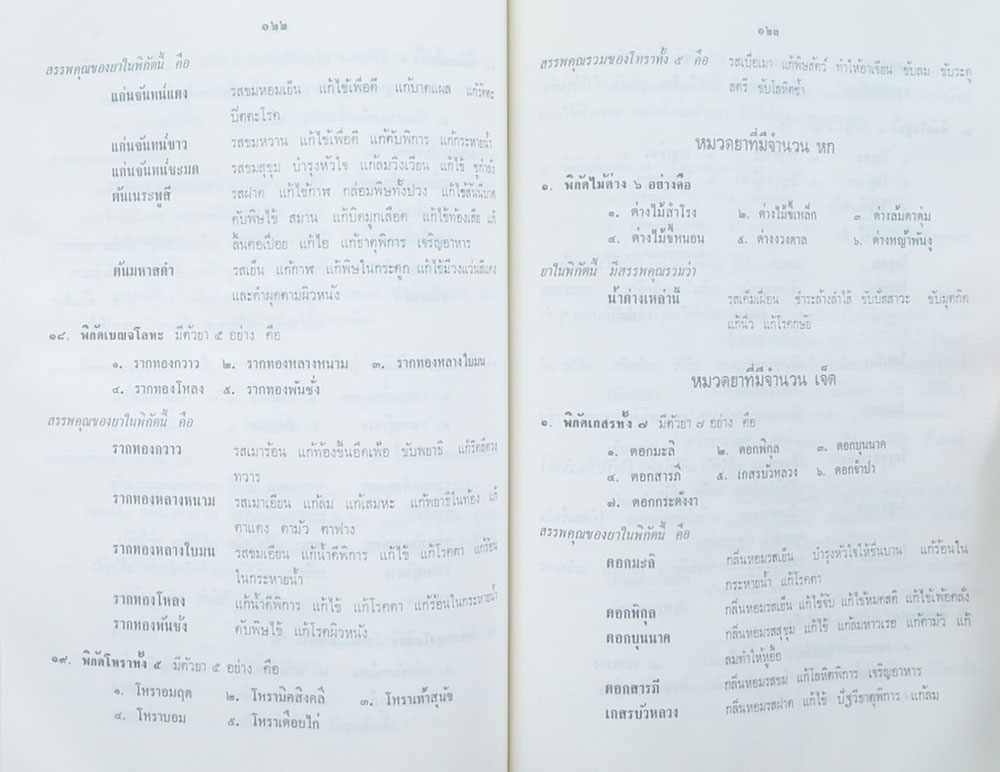 ๑๒๒
สรรพคุณของยาในพิกัดนี้ คือ
แก่นจันทน์แดง รสขมหอมเย็น แก้ไข้เพื่อดี แก้บาดแผล แก้รัตตะ
ปิตตะโรค
แก่นจันทน์ขาว รสขมหวาน แก้ไข้เพื่อดี แก้ตับพิการ แก้กระหายน้ำ
แก่นจันทน์ชะมด รสขมสุขุม บำรุงหัวใจ แก้ลมวิงเวียน แก้ไข้ ชูกำลัง
ต้นเนระพูสี รสฝาด แก้ไข้กาฬ กล่อมพิษทั้งปวง แก้ไข้สันนิบาต
ดับพิษไข้ สมาน แก้บิดมูกเลือด แก้ไข้ท้องเสีย แก้
ลิ้นคอเปื่อย แก้ไอ แก้ธาตุพิการ เจริญอาหาร
ต้นมหาสดำ รสเย็น แก้กาฬ แก้พิษในกระดูก แก้ไข้มีวงแว่นสีแดง
และดำผุดตามผิวหนัง
๑๘. พิกัดเบญจโลหะ มีตัวยา ๕ อย่าง คือ
๑. รากทองกวาว ๒. รากทองหลางหนาม ๓. รากทองหลางใบมน
๔. รากทองโหลง ๕. รากทองพันชั่ง
สรรพคุณของยาในพิกัดนี้ คือ
รากทองกวาว รสเมาร้อน แก้ท้องขึ้นอืดเฟ้อ ขับพยาธิ แก้ริดสีดวง
ทวาร
รากทองหลางหนาม รสเมาเอียน แก้ลม แก้เสมหะ แก้พยาธิในท้อง แก้
ตาแดง ตามัว ตาฟาง
รากทองหลางใบมน รสขมเอียน แก้น้ำดีพิการ แก้ไข้ แก้โรคตา แก้ร้อน
ในกระหายน้ำ
รากทองโหลง แก้น้ำดีพิการ แก้ไข้ แก้โรคตา แก้ร้อนในกระหายน้ำ
รากทองพันชั่ง ดับพิษไข้ แก้โรคผิวหนัง
๑๙. พิกัดโหราทั้ง ๕ มีตัวยา ๕ อย่าง คือ
๑. โหราอมฤต ๒. โหรามิคสิงคลี ๓. โหราเท้าสุนัข
๔. โหราบอน ๕. โหราเดือยไก่
๑๒๓
สรรพคุณรวมของโหราทั้ง ๕ คือ รสเบื่อเมา แก้พิษสัตว์ ทำให้อาเจียน ขับลม ขับระดู
สตรี ขับโลหิตช้ำ
หมวดยาที่มีจำนวน หก
๑. พิกัดไม้ด่าง ๖ อย่างคือ
๑. ด่างไม้สำโรง ๒. ด่างไม้ขี้เหล็ก ๓. ด่างส้มตาตุ่ม
๔. ด่างไม้ขี้หนอน ๕. ด่างงวงตาล ๖. ด่างหญ้าพันงู
ยาในพิกัดนี้ มีสรรพคุณรวมว่า
น้ำด่างเหล่านี้ รสเค็มเฝื่อน ชำระล้างลำไส้ ขับปัสสาวะ ขับมุตกิด
แก้นิ่ว แก้โรคกษัย
หมวดยาที่มีจำนวน เจ็ด
๑. พิกัดเกสรทั้ง ๗ มีตัวยา ๗ อย่าง คือ
๑. ดอกมะลิ ๒. ดอกพิกุล ๓. ดอกบุนนาค
๔. ดอกสารภี ๕. เกสรบัวหลวง ๖. ดอกจำปา
๗. ดอกกระดังงา
สรรพคุณของยาในพิกัดนี้ คือ
ดอกมะลิ กลิ่นหอมรสเย็น บำรุงหัวใจให้ชื่นบาน แก้ร้อนใน
กระหายน้ำ แก้โรคตา
ดอกพิกุล กลิ่นหอมรสเย็น แก้ไข้จับ แก้ไข้หมดสติ แก้ไข้เพ้อคลั่ง
ดอกบุนนาค กลิ่นหอมรสสุขุม แก้ไข้ แก้ลมหาวเรอ แก้ตามัว แก้
ลมทำให้หูอื้อ
ดอกสารภี กลิ่นหอมรสขม แก้โลหิตพิการ เจริญอาหาร
เกสรบัวหลวง กลิ่นหอมรสฝาด แก้ไข้ ปัฐวีธาตุพิการ แก้ลม